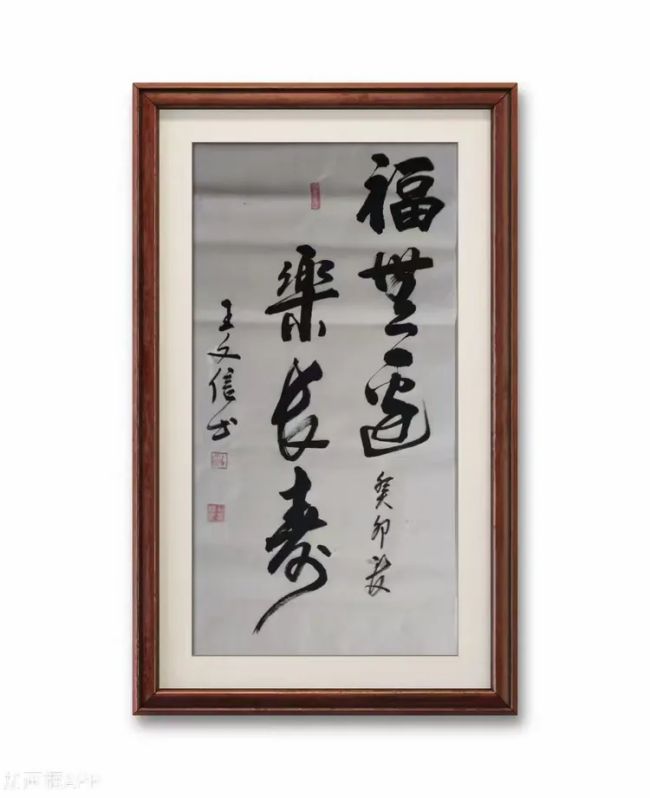 福無邊
癸卯
樂長壽
王文信书
APP